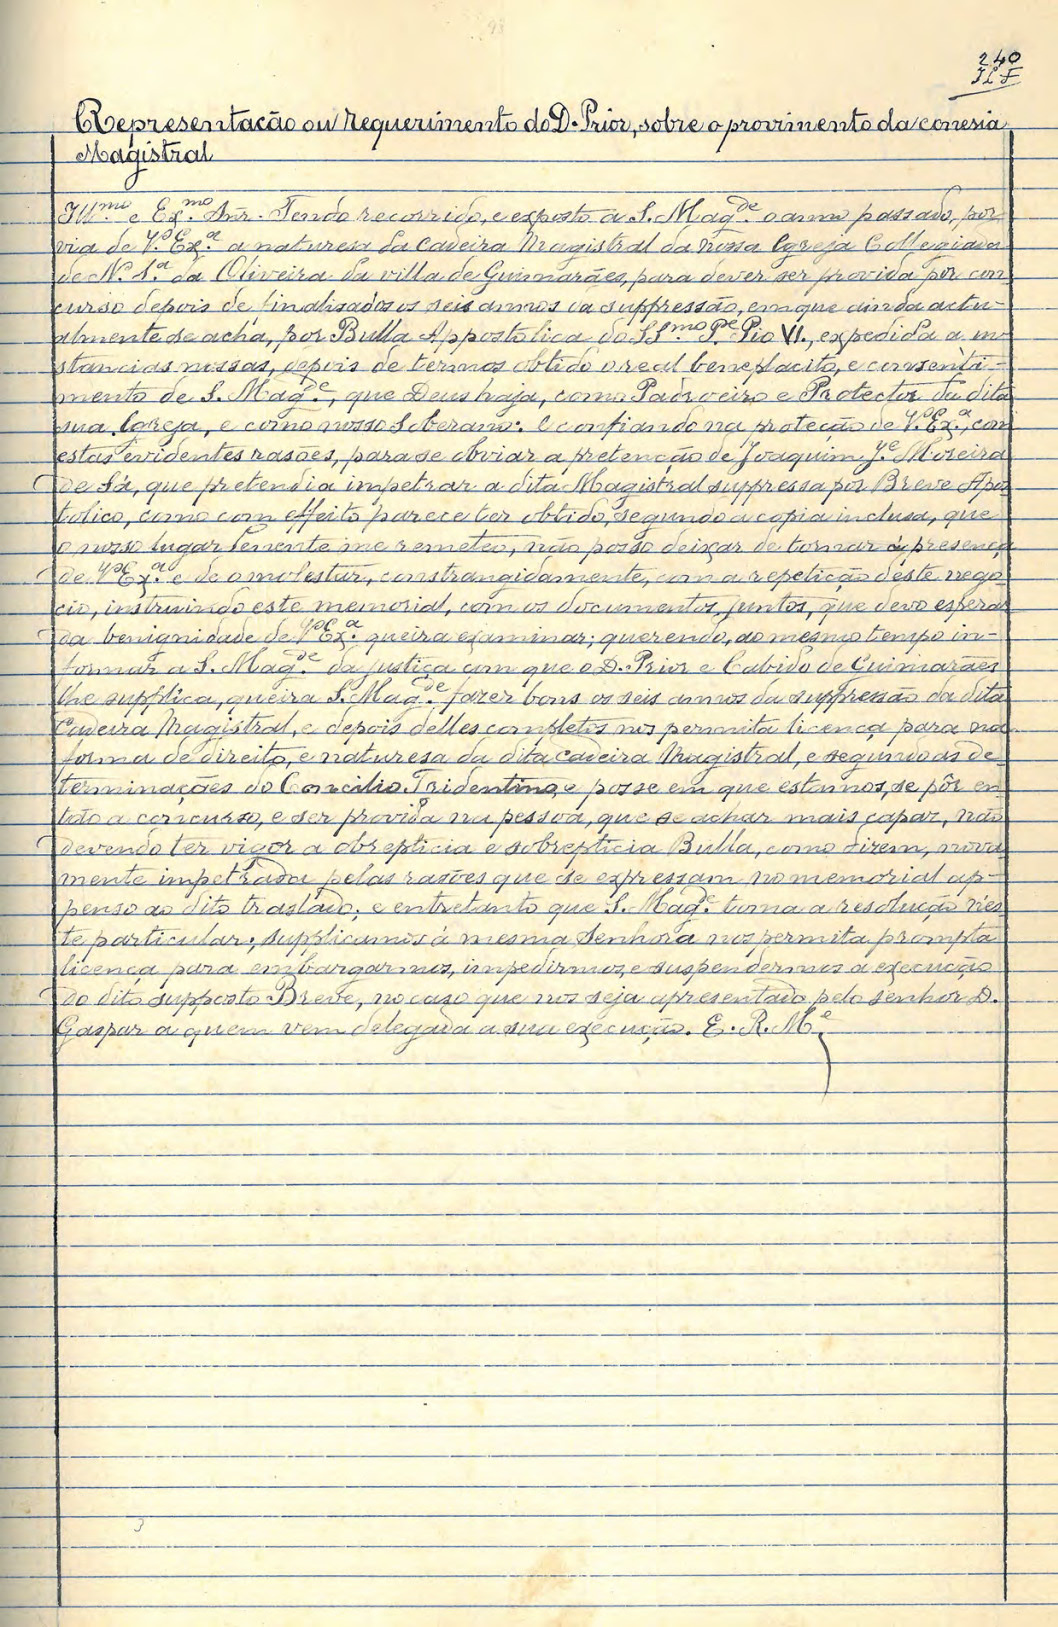 93
240
Representação ou requerimento do D. Prior, sobre o provimento da conesia
Magistral
Ill.mo e Ex.mo Snr. Tendo recorrido, e exposto a S. Mag.de o anno passado, por
via de V.ª Ex.ª a naturesa da Cadeira Magistral da nossa Igreja Collegiada
de N. S.ª da Oliveira da villa de Guimarães, para dever ser provida por con
curso depois de finalisados os seis annos da suppressão, em que ainda actu-
almente se acha, por Bulla Appostolica do SS.mo P.e Pio VI., expedida a in
stancias nossas, depois de termos obtido o real beneplacito, e consenti-
mento de S. Mag.de, que Deus haja, como Padroeiro e Protector da dita
sua Igreja, e como nosso Soberano: e confiando na proteção de V.ª Ex.ª, com
estas evidentes rasões, para se obviar a pretenção de Joaquim J.e Moreira
de Sá, que pretendia impetrar a dita Magistral suppressa por Breve Apos
tolico, como com effeito parece ter obtido, segundo a copia inclusa, que
o nosso lugar Tenente me remeteo, não posso deixar de tornar á presença
de V.ª Ex.ª e de o molestar, constrangidamente, com a repetição deste nego
cio, instruindo este memorial, com os documentos juntos, que devo esperar
da benignidade de V.ª Ex.ª queira examinar; querendo, ao mesmo tempo in-
formar a S. Mag.de da justiça com que o D. Prior e Cabido de Guimarães
lhe supplica, queira S. Mag.de fazer bons os seis annos da suppressão da dita
Cadeira Magistral, e depois delles completos nos permita licença para na
forma de direito, e naturesa da dita cadeira Magistral, e segundo as de
terminações do Concilio Tridentino, e posse em que estamos, se pôr en
tão a concurso, e ser provida na pessoa, que se achar mais capaz, não
devendo ter vigor a obrepticia e sobrepticia Bulla, como dizem, nova
mente impetrada pelas rasões que se expressam no memorial ap-
penso ao dito traslado; e entretanto que S. Mag.e toma a resolução nes
te particular; supplicamos á mesma Senhora nos permita prompta
licença para embargarmos, impedirmos, e suspendermos a execução
do dito supposto Breve, no caso que nos seja apresentado pelo senhor D.
Gaspar a quem vem delegada a sua execução. E. R. M.e
3